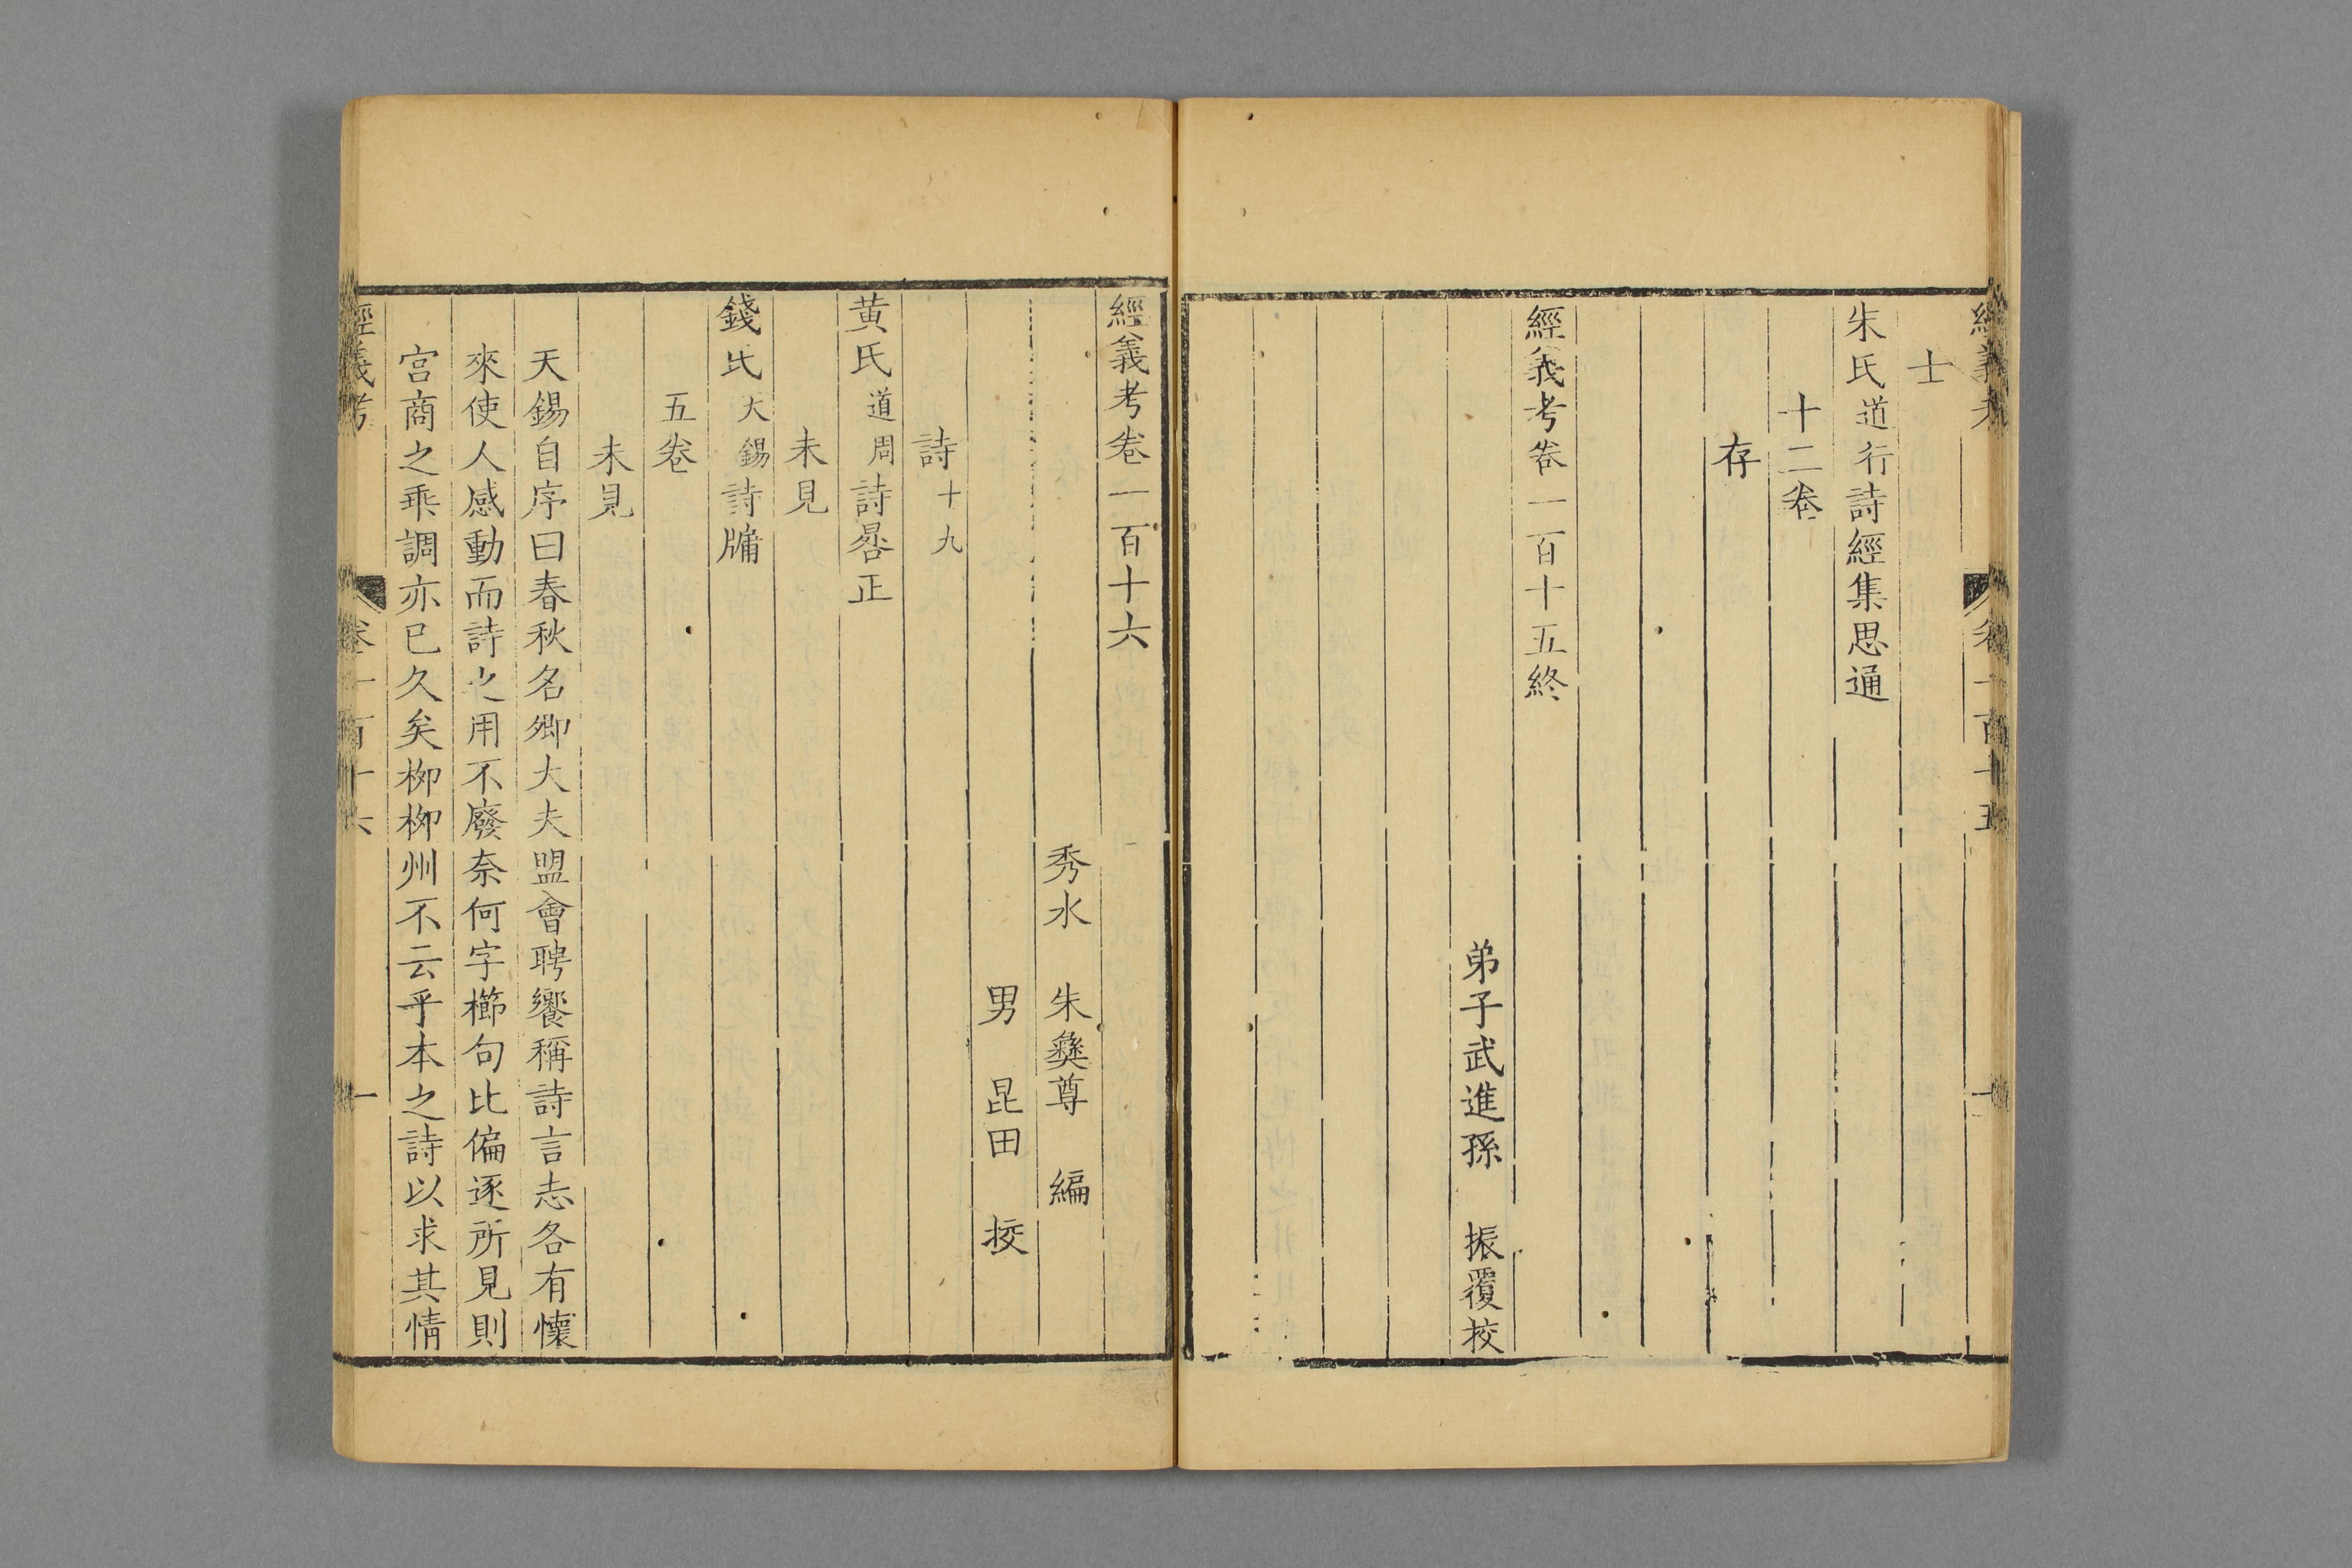 經義考
卷一百十五
士
朱氏道行詩經集思通
十二卷
存
經義考卷一百十五終
弟子武進孫 振覆校
經義考卷一百十六
秀水 朱彝尊 編
男 昆田 挍
詩十九
黄氏道周詩晷正
未見
錢氏天錫詩牗
五卷
未見
天錫自序曰春秋名卿大夫盟會聘饗稱詩言志各有懷
來使人感動而詩之用不廢奈何字櫛句比偏逐所見則
宫商之乖調亦已久矣栁柳州不云乎本之詩以求其情
經義考
卷一百十六
一